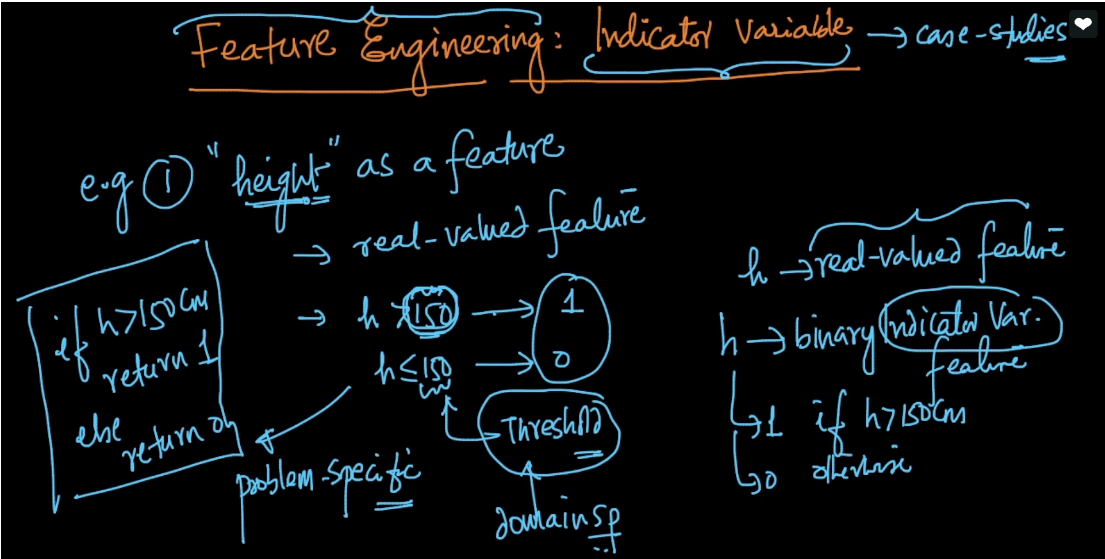 Feature Engineering: Indicator Variable → case-studies
e.g ① "height" as a feature
→ real-valued feature
→ h > 150 → 1
h ≤ 150 → 0
Threshold
problem-specific
domain sp
if h>150cm
return 1
else
return 0
h → real-valued feature
h → binary Indicator Var.
feature
↳ 1 if h>150cm
↳ 0 otherwise